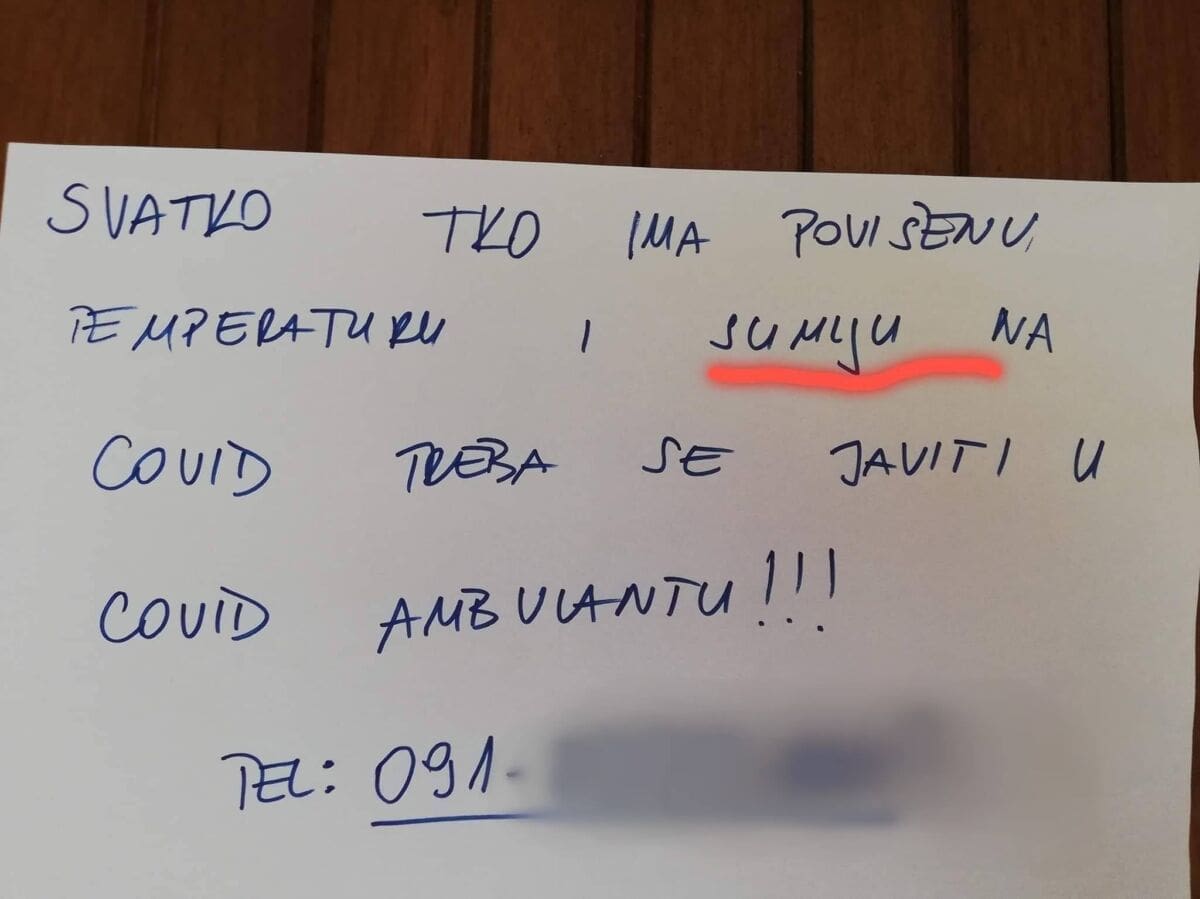 SVATKO TKO IMA POVIŠENU
TEMPERATURU I SUMLJU NA
COVID TREBA SE JAVITI U
COVID AMBULANTU!!!
TEL: 091-